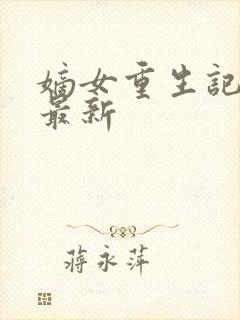 嫡女重生記
最新
蔣永萍